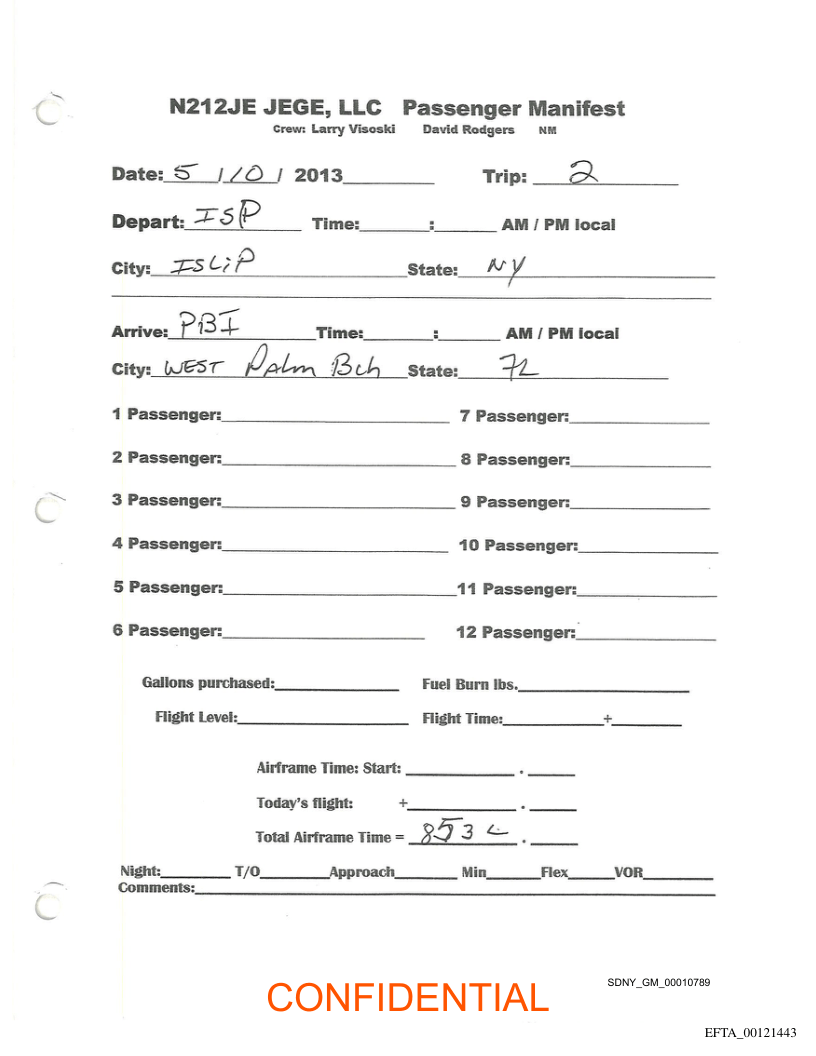 N212JE JEGE, LLC Passenger Manifest
Crew: Larry Visoski David Rodgers NM
Date: 5 / 10 / 2013 Trip: 2
Depart: ISP Time:______:______ AM / PM local
City: ISLIP State: NY
Arrive: PBI Time:______:______ AM / PM local
City: WEST Palm Bch State: FL
1 Passenger: 7 Passenger:
2 Passenger: 8 Passenger:
3 Passenger: 9 Passenger:
4 Passenger: 10 Passenger:
5 Passenger: 11 Passenger:
6 Passenger: 12 Passenger:
Gallons purchased: Fuel Burn lbs.
Flight Level: Flight Time:______+______
Airframe Time: Start: ______ . ______
Today's flight: +______ . ______
Total Airframe Time = 853 . ______
Night:______ T/O______Approach______ Min______Flex______VOR______
Comments:
SDNY_GM_00010789
CONFIDENTIAL
EFTA_00121443